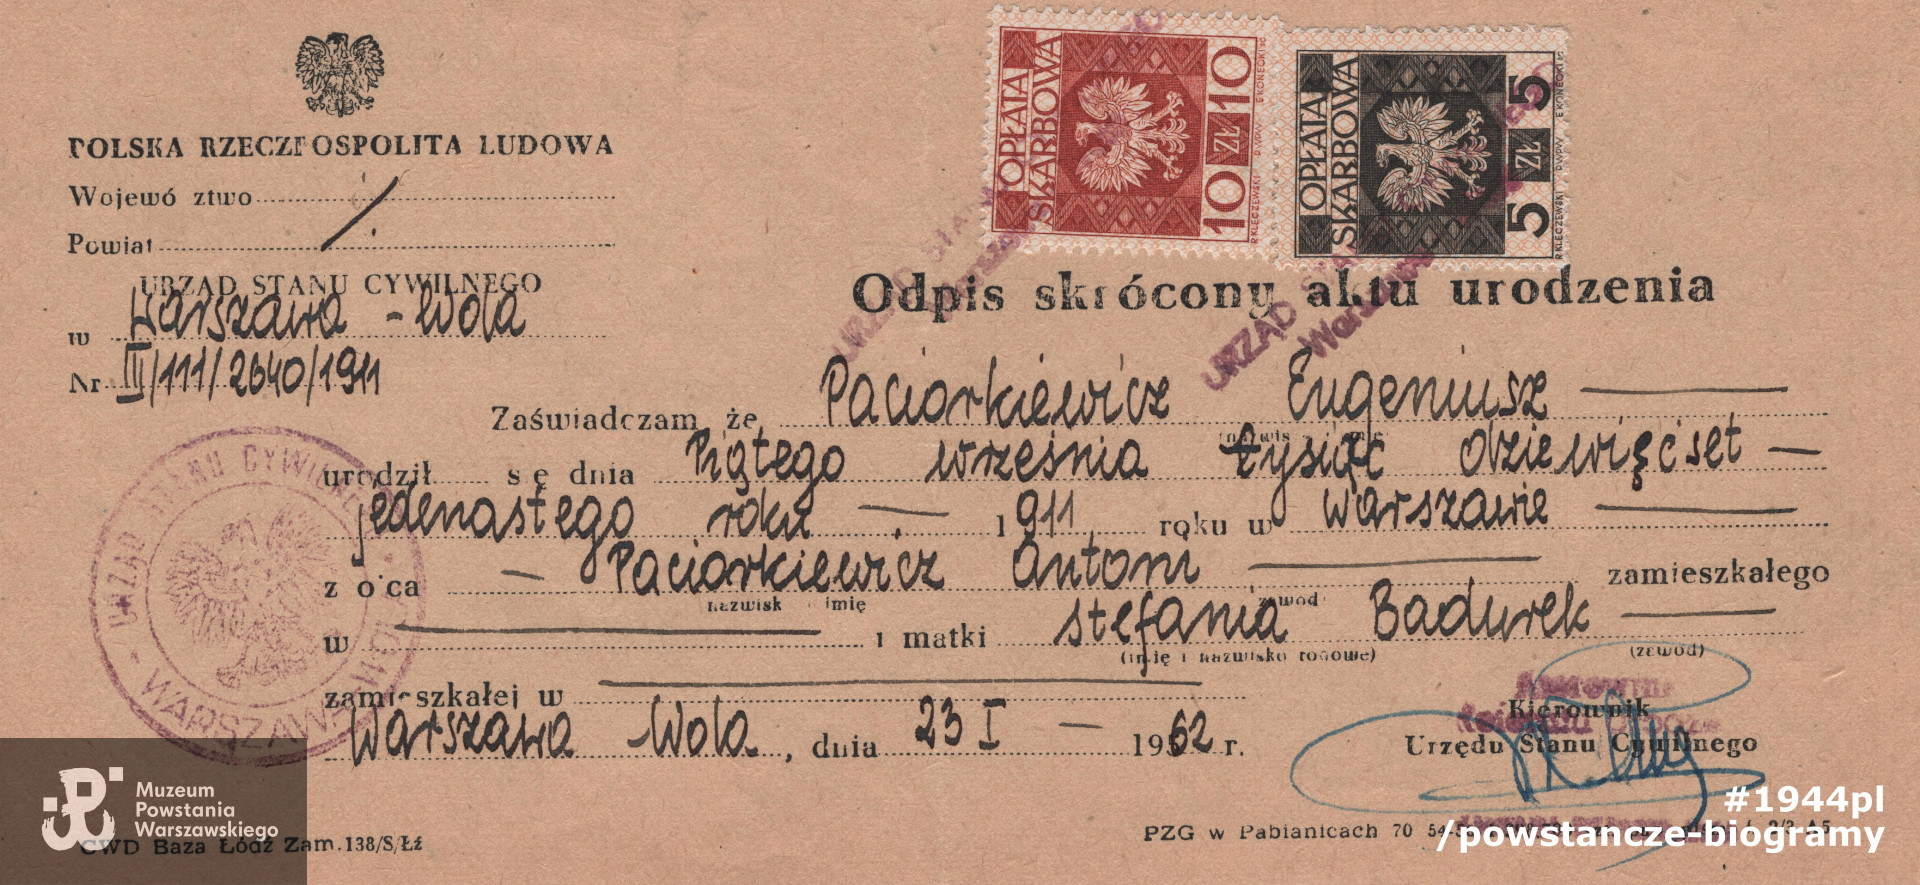 POLSKA RZECZPOSPOLITA LUDOWA
Wojewó ztwo
Powiat
URZĄD STANU CYWILNEGO
w Warszawa - Wola
Nr III/111/2640/1911
OPŁATA SKARBOWA
10 ZŁ 10
R.KLECZEWSKI P.W.P.W. E.KONECKI sc.
OPŁATA SKARBOWA
5 ZŁ 5
R.KLECZEWSKI P.W.P.W. E.KONECKI sc.
URZĄD STANU
Warszawa
URZĄD STA
Warszawa
Odpis skrócony aktu urodzenia
Zaświadczam że Paciorkiewicz Eugeniusz
urodził s ę dnia Piątego września tysiąc dziewięćset
jedenastego roku 1911 roku w Warszawie
z o'ca - Paciorkiewicz Antoni zamieszkałego
nazwisk i imię zawód
w i matki Stefania Badurek
(imię i nazwisko rodowe) (zawód)
zamieszkałej w
Warszawa - Wola, dnia 23 I - 1962 r.
Kierownik
Urzędu Stanu Cywilnego
URZĄD STANU CYWILNEGO
WARSZAWA
Muzeum
Powstania
Warszawskiego
CWD Baza Łódź Zam. 138/S/Łź
PZG w Pabianicach 70
#1944pl
/powstancze-biogramy